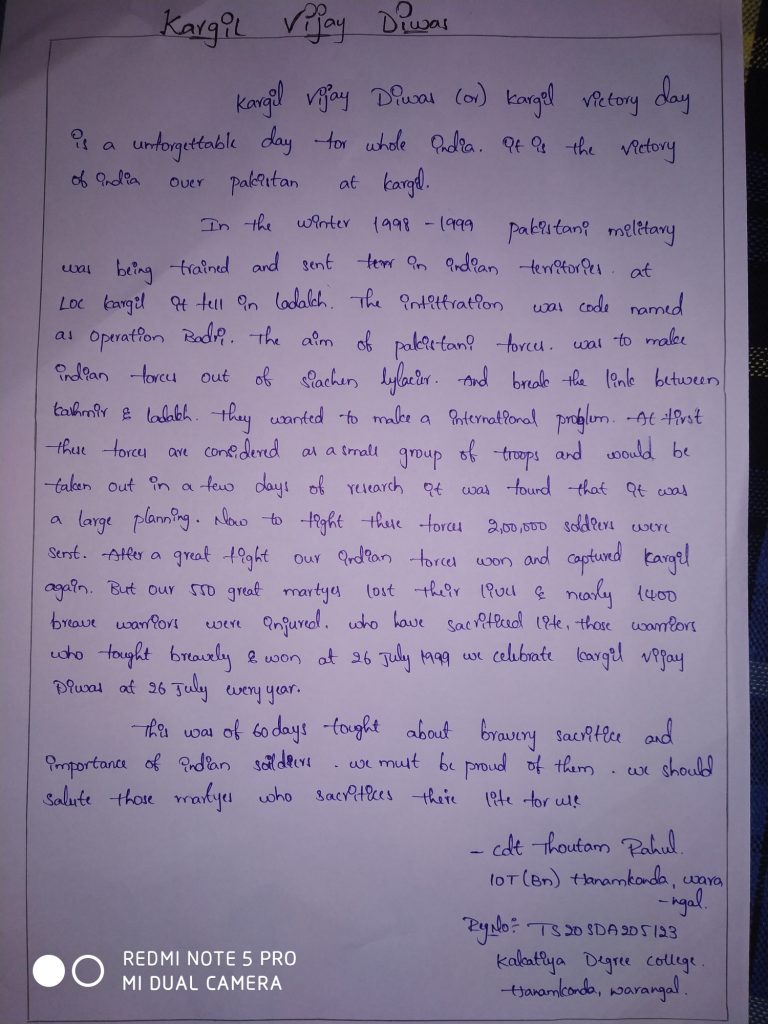 Kargil Vijay Diwas
Kargil Vijay Diwas (or) kargil victory day
is a unforgettable day for whole india. it is the victory
of india over pakistan at kargil.
In the winter 1998 - 1999 pakistani military
was being trained and sent terr in indian territories. at
LOC kargil it fell in ladakh. The infiltration was code named
as Operation Badri. The aim of pakistani forces. was to make
indian forces out of siachen lylacier. And break the link between
kashmir & ladakh. They wanted to make a international problem. At first
these forces are considered as a small group of troops and would be
taken out in a few days of research it was found that it was
a large planning. Now to fight these forces 2,00,000 soldiers were
sent. After a great fight our indian forces won and captured kargil
again. But our 550 great martyes lost their lives & nearly 1400
breave warriors were injured. who have sacrificed life, those warriors
who fought breavely & won at 26 July 1999 we celebrate kargil vijay
Diwas at 26 July every year.
This was of 60 days fought about bravery sacrifice and
importance of indian soildiers. we must be proud of them. we should
salute those martyes who sacrifices their life for use
- cdt Thoutam Rahul.
10T (Bn) Hanamkonda, wara
-ngal.
RgNo:- TS20SDA205123
Kakatiya Degree college.
Hanamkonda, warangal.
REDMI NOTE 5 PRO
MI DUAL CAMERA